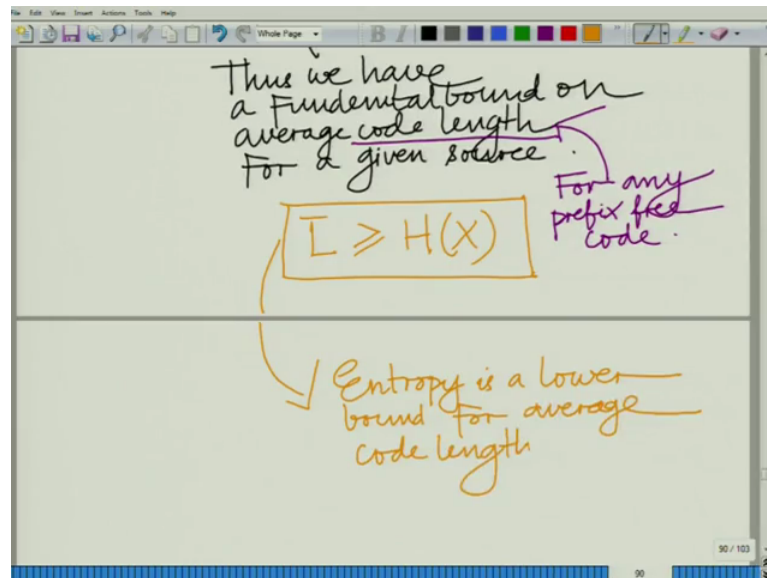 File Edit View Insert Actions Tools Help
Whole Page
B I
Thus we have
a Fundemtal bound on
average code length
For a given source.
For any
prefix free
code.
L̄ ≥ H(X)
Entropy is a lower
bound for average
code length
90 / 103
90